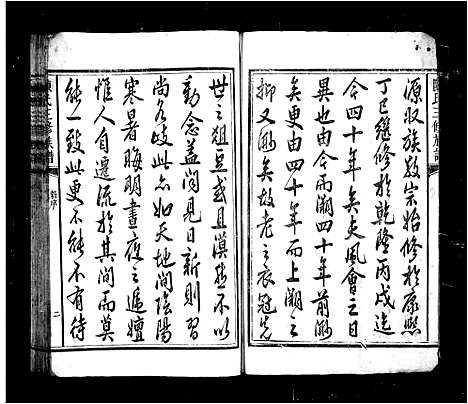 陳氏三修族譜
源收族敦宗始修於康熙
丁巳繼修於乾隆丙戌迄
今四十年矣夫風會之日
異也由今而溯四十年前渺
矣更由四十年而上溯之
抑又渺矣故老之衣冠先
世之俎豆或且漠然不以
動念蓋聞見日新則習
尚名歧此亦如天地間陰陽
寒暑晦明晝夜之遞嬗
惟人自遷流於其間而莫
能一致此更不能不有待
陳氏三修族譜
序
二